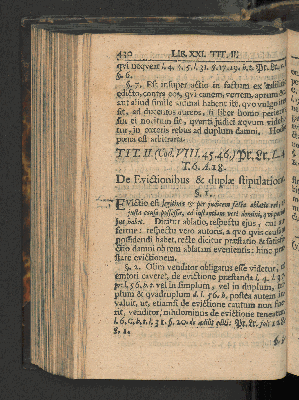 430 LIB. XXI. TIT. II.
qui nequeat l. 4. §. 5. l. 31. §. 17. 19. h. t. Pr. Lr.
§. 6.
§. 7. Est insuper actio in factum ex ædilitio
edicto, contra eos, qui canem, verrem, aprum &
aut aliud simile animal habent ibi, quo vulgo iter
fit, ad docentes autores, si liber homo perierit
sit ei nocitum sit, quanti judici æquum videbi-
tur, in ceteris rebus ad duplum damni. Hodie
poena est arbitraria.
TIT. II (Cod. VIII. 45. 46.) Pr. Lr. L. 4
T. 6. & 18.
De Evictionibus & duplæ stipulatione.
§. 1.
Evictio est legitima & per judicem facta ablatio rei,
justa causa possessæ, ad instantiam veri domini, qui
jus habet. Dicitur ablatio, respectu ejus, cui
fertur: respectu vero autoris, a quo quis causam
possidendi habet, recte dicitur præstatio & satisfa-
ctio damni ob rem ablatam evenientis: hinc præ-
stare evictionem.
§. 2. Olim venditor obligatus esse videtur, ut
emtori caveret, de evictione præstanda l. 4. l. 37.
pr. l. 56. h. t. vel in simplum, vel in duplum,
plum & quadruplum d. l. 56. h. postea autem in-
valuit, ut, etiamsi de evictione cautum non fue-
rit, venditor, nihilominus de evictione teneatur,
l. 6. C. h. t. l. 31. §. 20. de ædilit. edict. Pr. Lr.
§. 1.